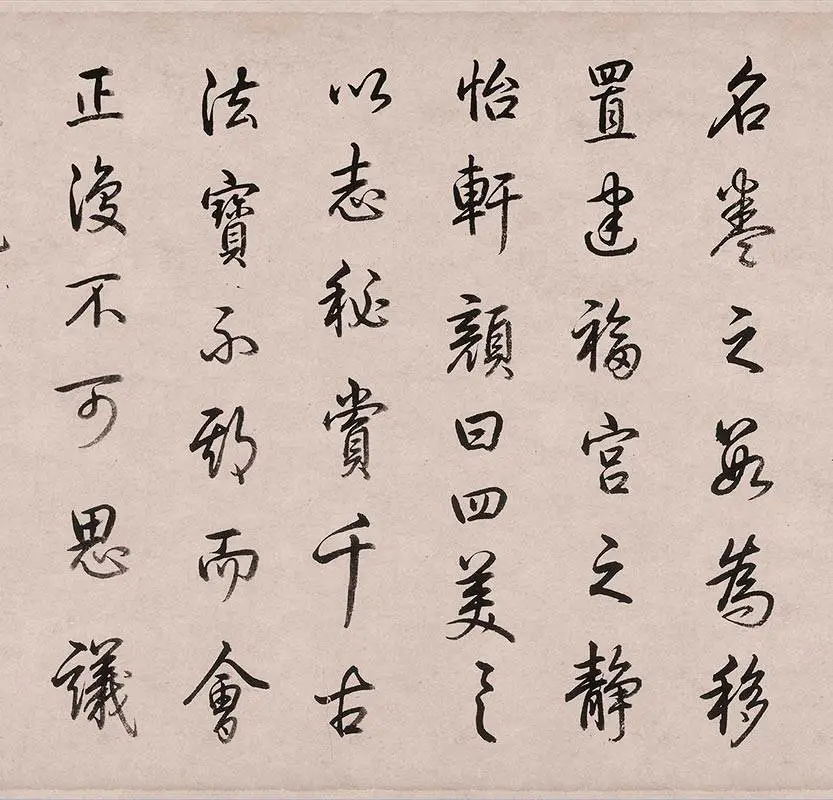 名卷之數為移
置建福宮之靜
怡軒顏曰四美具
以志秘賞千古
法寶不期而會
正復不可思議